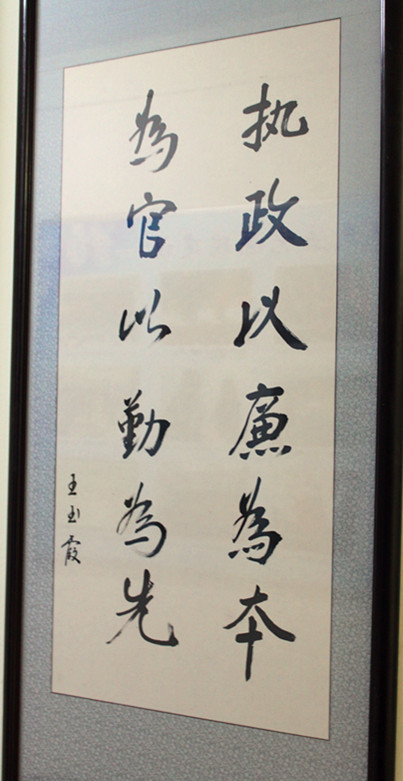 执政以廉為本
為官以勤為先
王玉霞